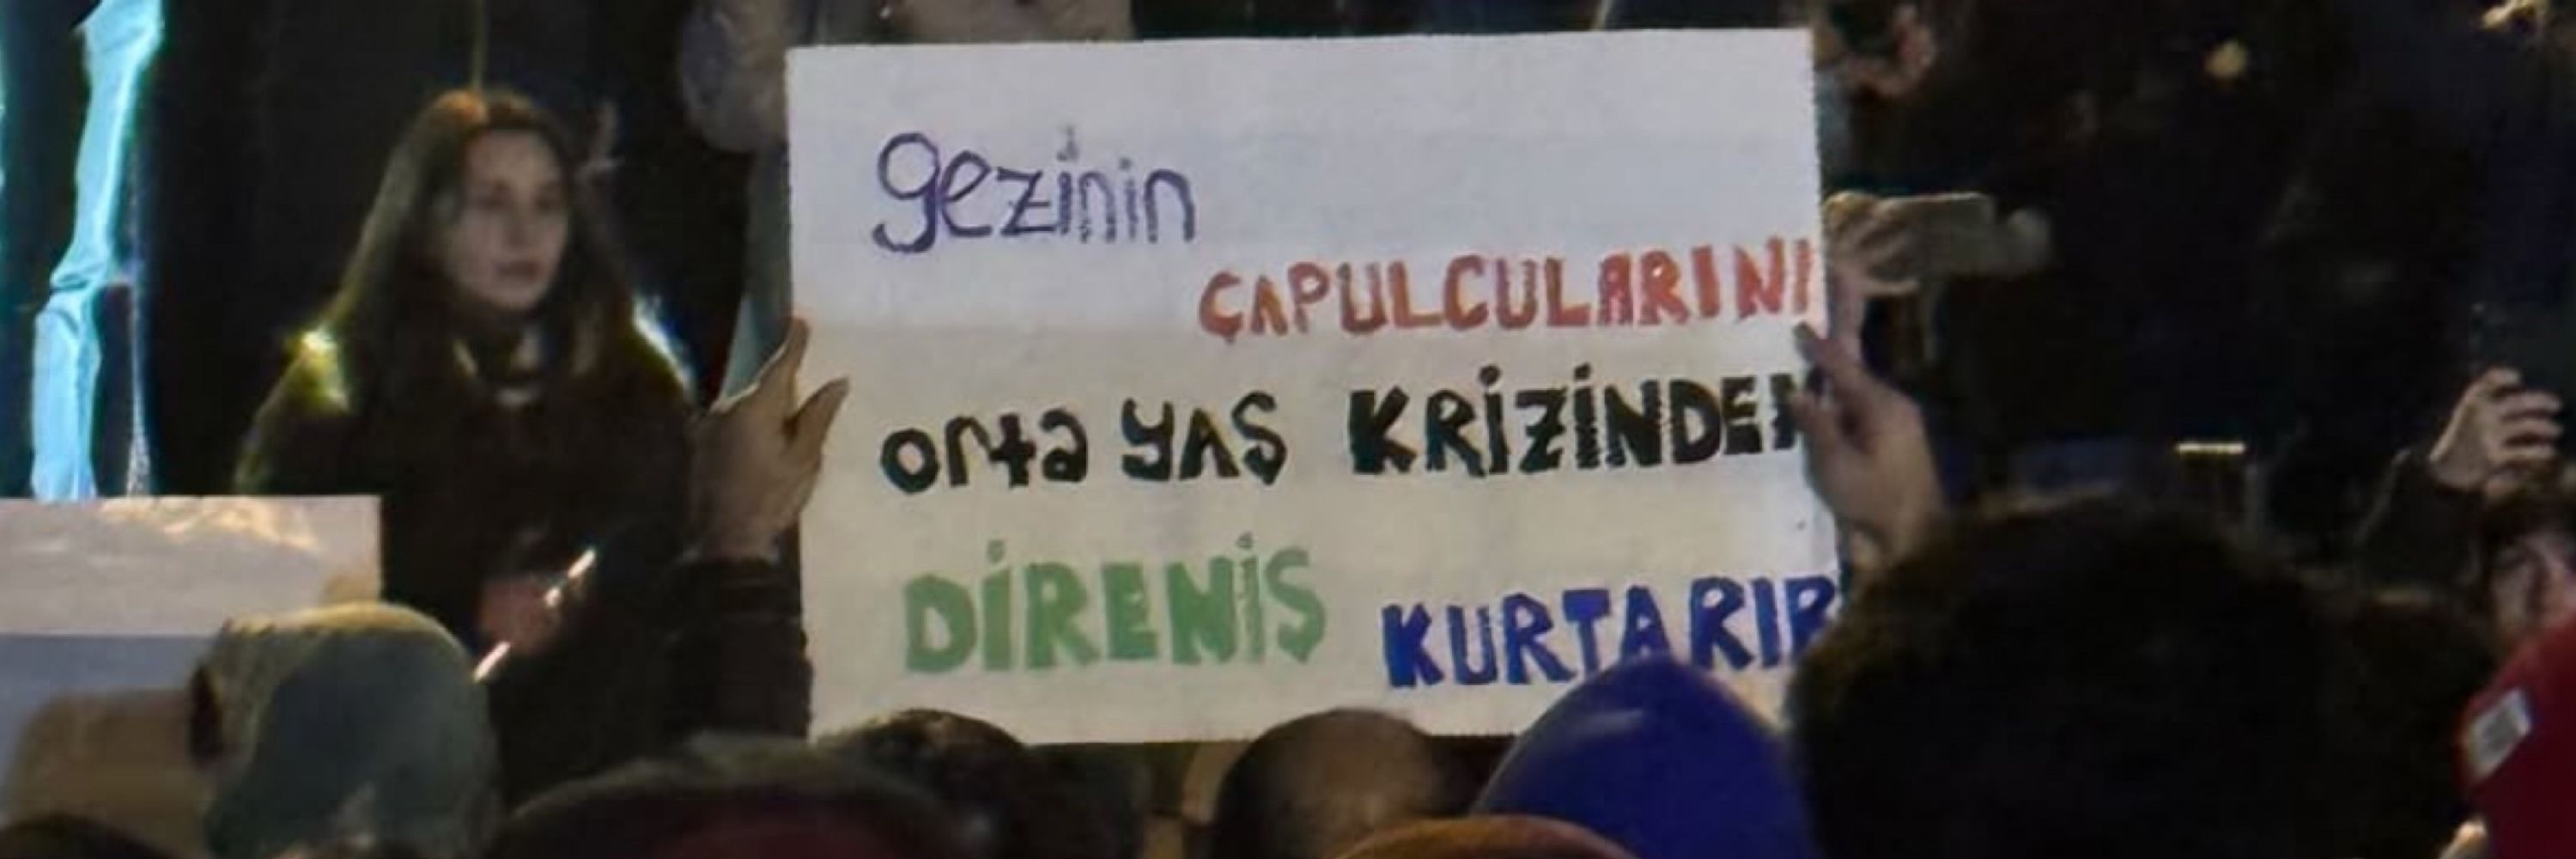 gezinin
ÇAPULCULARINI
orta YAŞ KRİZİNDEN
DİRENİŞ KURTARIR